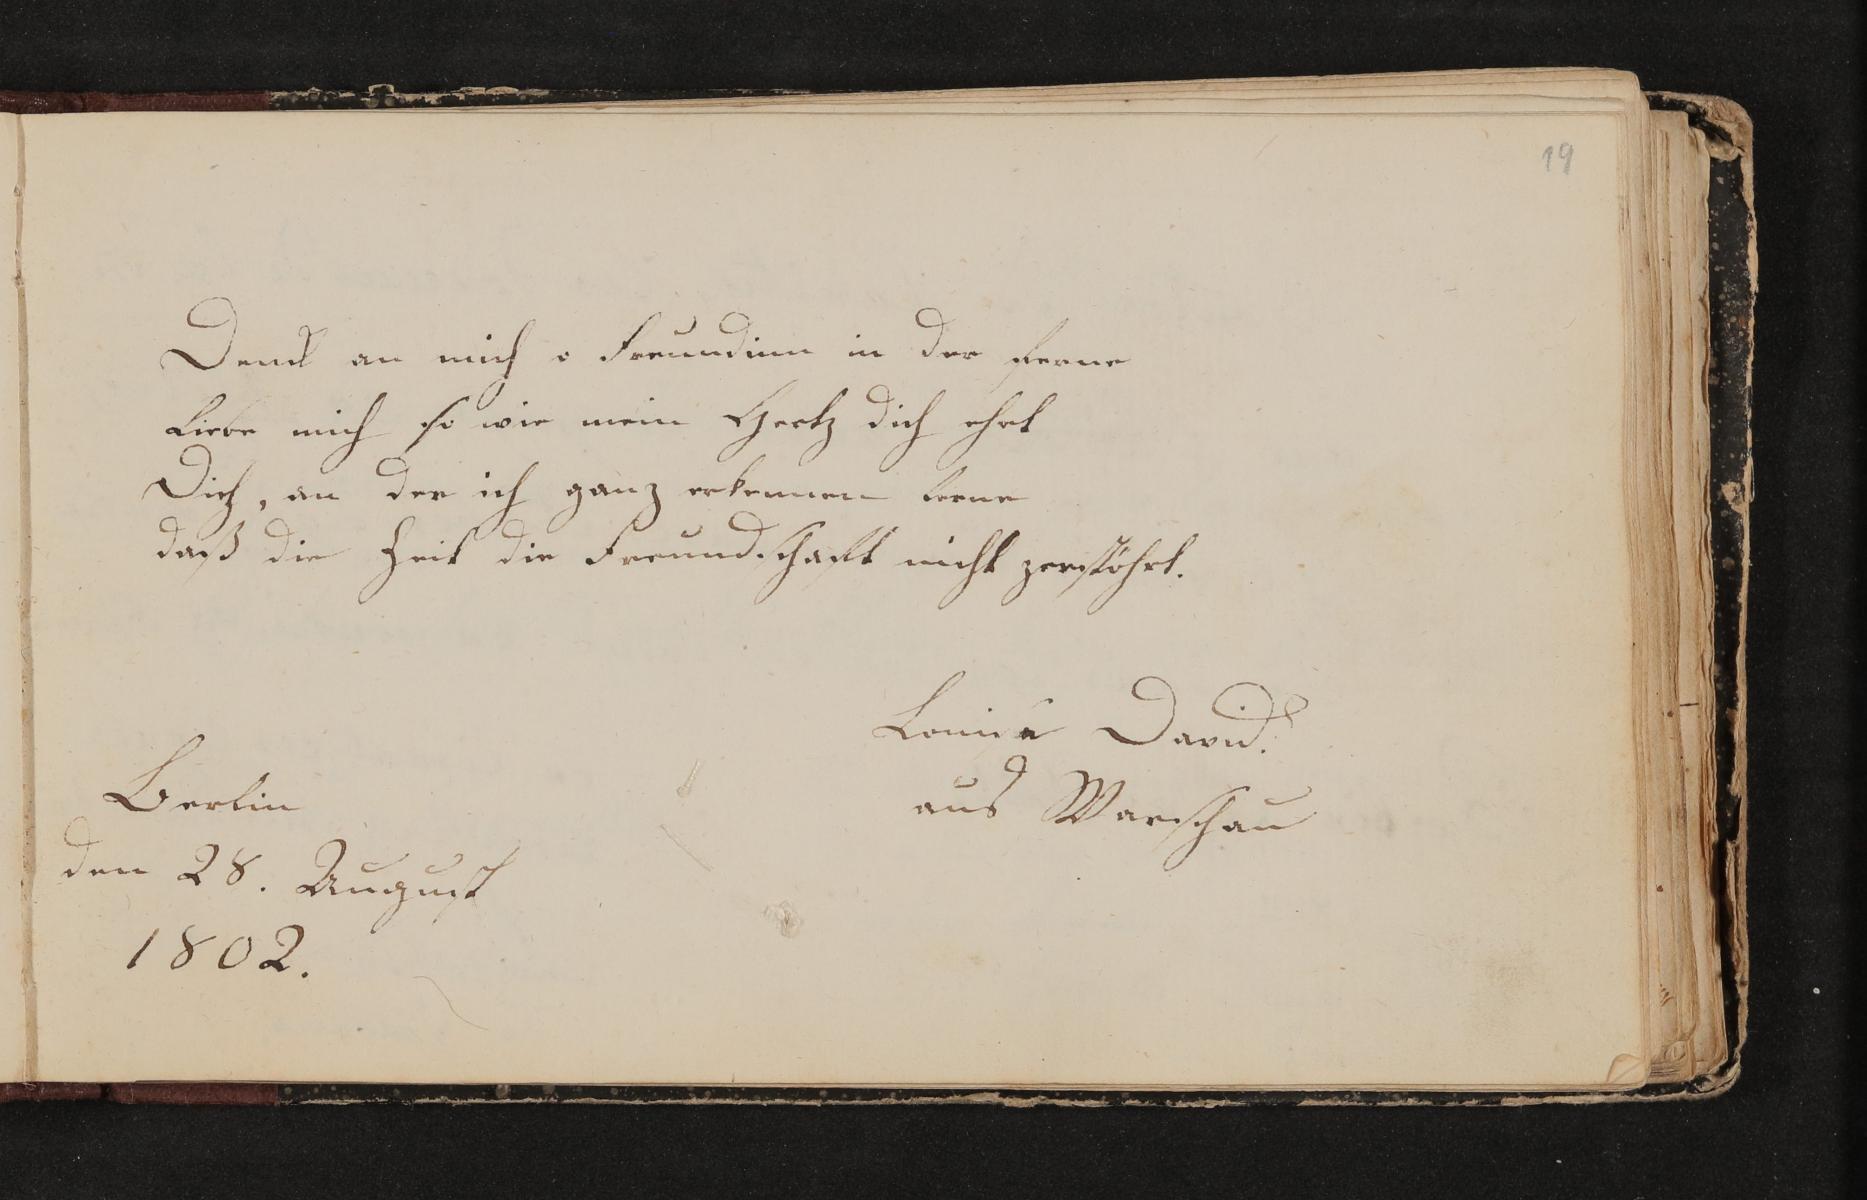 19
Denck an mich o Freundinn in der Ferne
Liebe mich so wie mein Hertz dich ehrt
Dich, an der ich ganz erkennen lerne
daß die Zeit die Freundschaft nicht zerstöhrt.
Louise David.
aus Warschau
Berlin
den 28. August
1802.